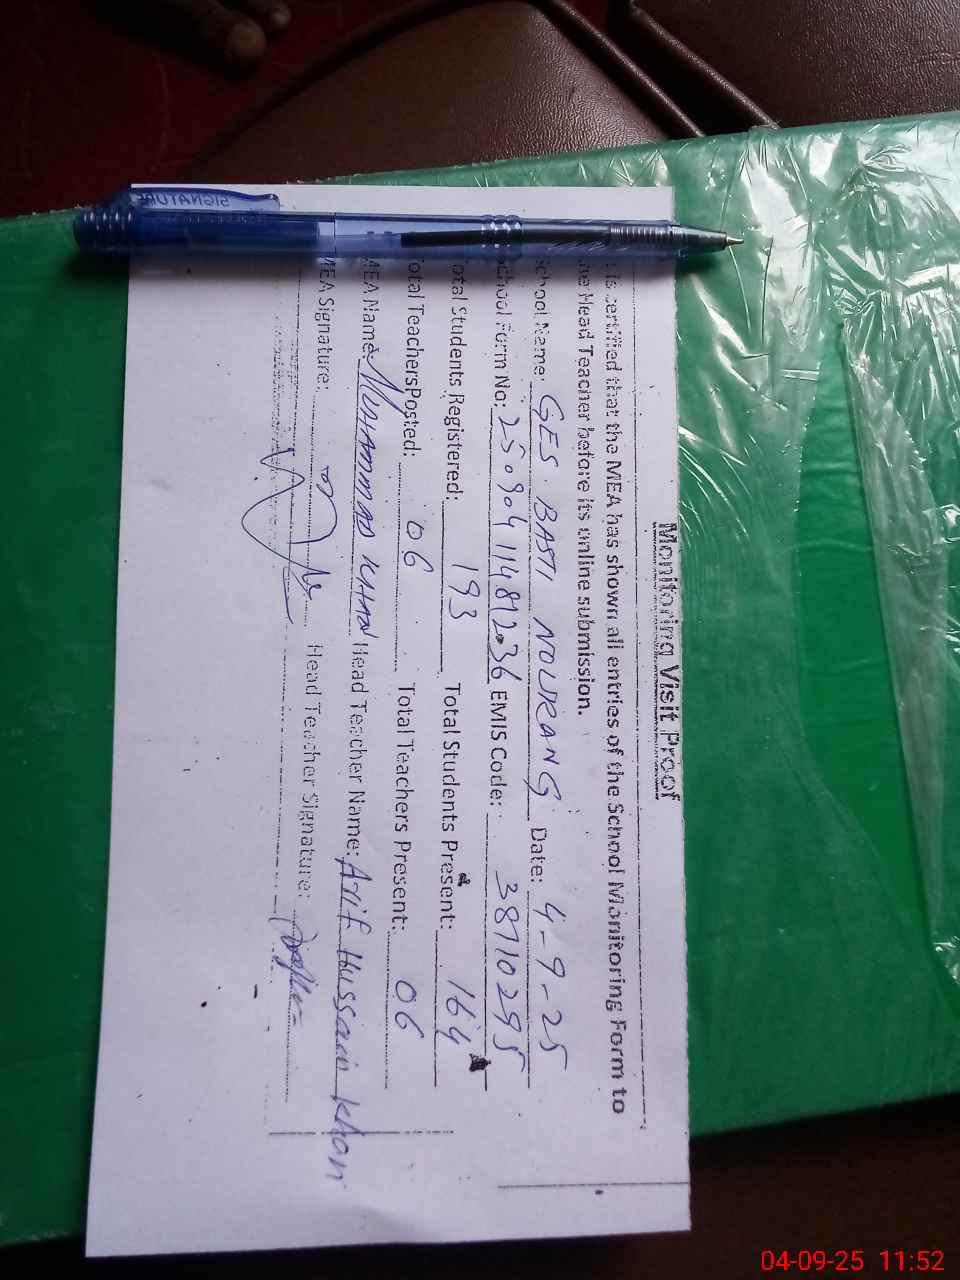 Monitoring Visit Proof
t is certified that the MEA has shown all entries of the School Monitoring Form to
he Head Teacher before its online submission.
School Name: GES BASTI NOURANG Date: 4-9-25
School Form No: EMIS Code: 38110295
Total Students Registered: 193 Total Students Present: 164
Total TeachersPosted: 06 Total Teachers Present: 06
MEA Name: MUHAMMAD KHAN Head Teacher Name: Arif Hussain Khan
MEA Signature: Head Teacher Signature:
SIGNATURE
04-09-25 11:52